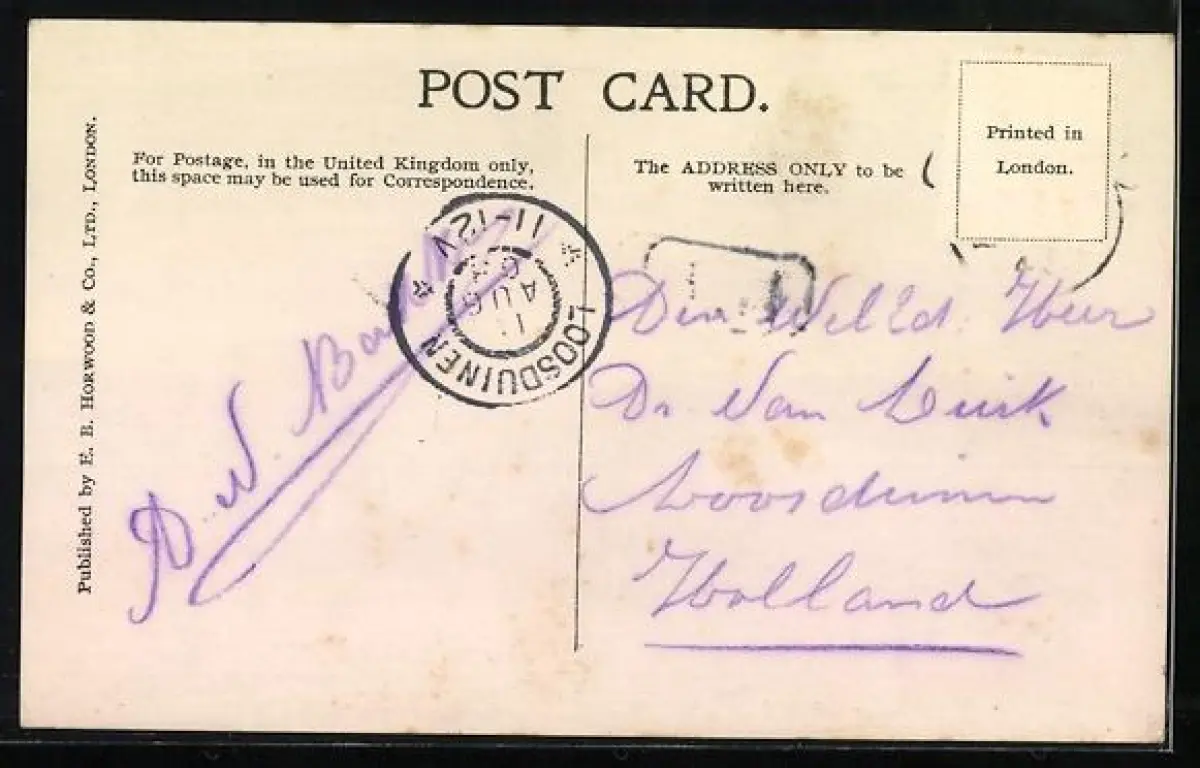 POST CARD.
For Postage, in the United Kingdom only,
this space may be used for Correspondence.
The ADDRESS ONLY to be
written here.
Printed in
London.
Published by E. B. Horwood & Co., Ltd., London.
LOOSDUINEN
11-12V
AUG
Heer
Dr Van
Loosduinen
Holland